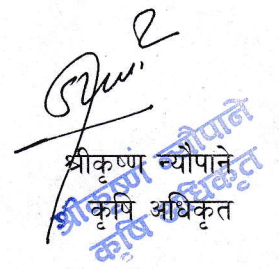 श्रीकृष्ण न्यौपाने
कृषि अधिकृत
श्रीकृष्ण न्यौपाने
कृषि अधिकृत